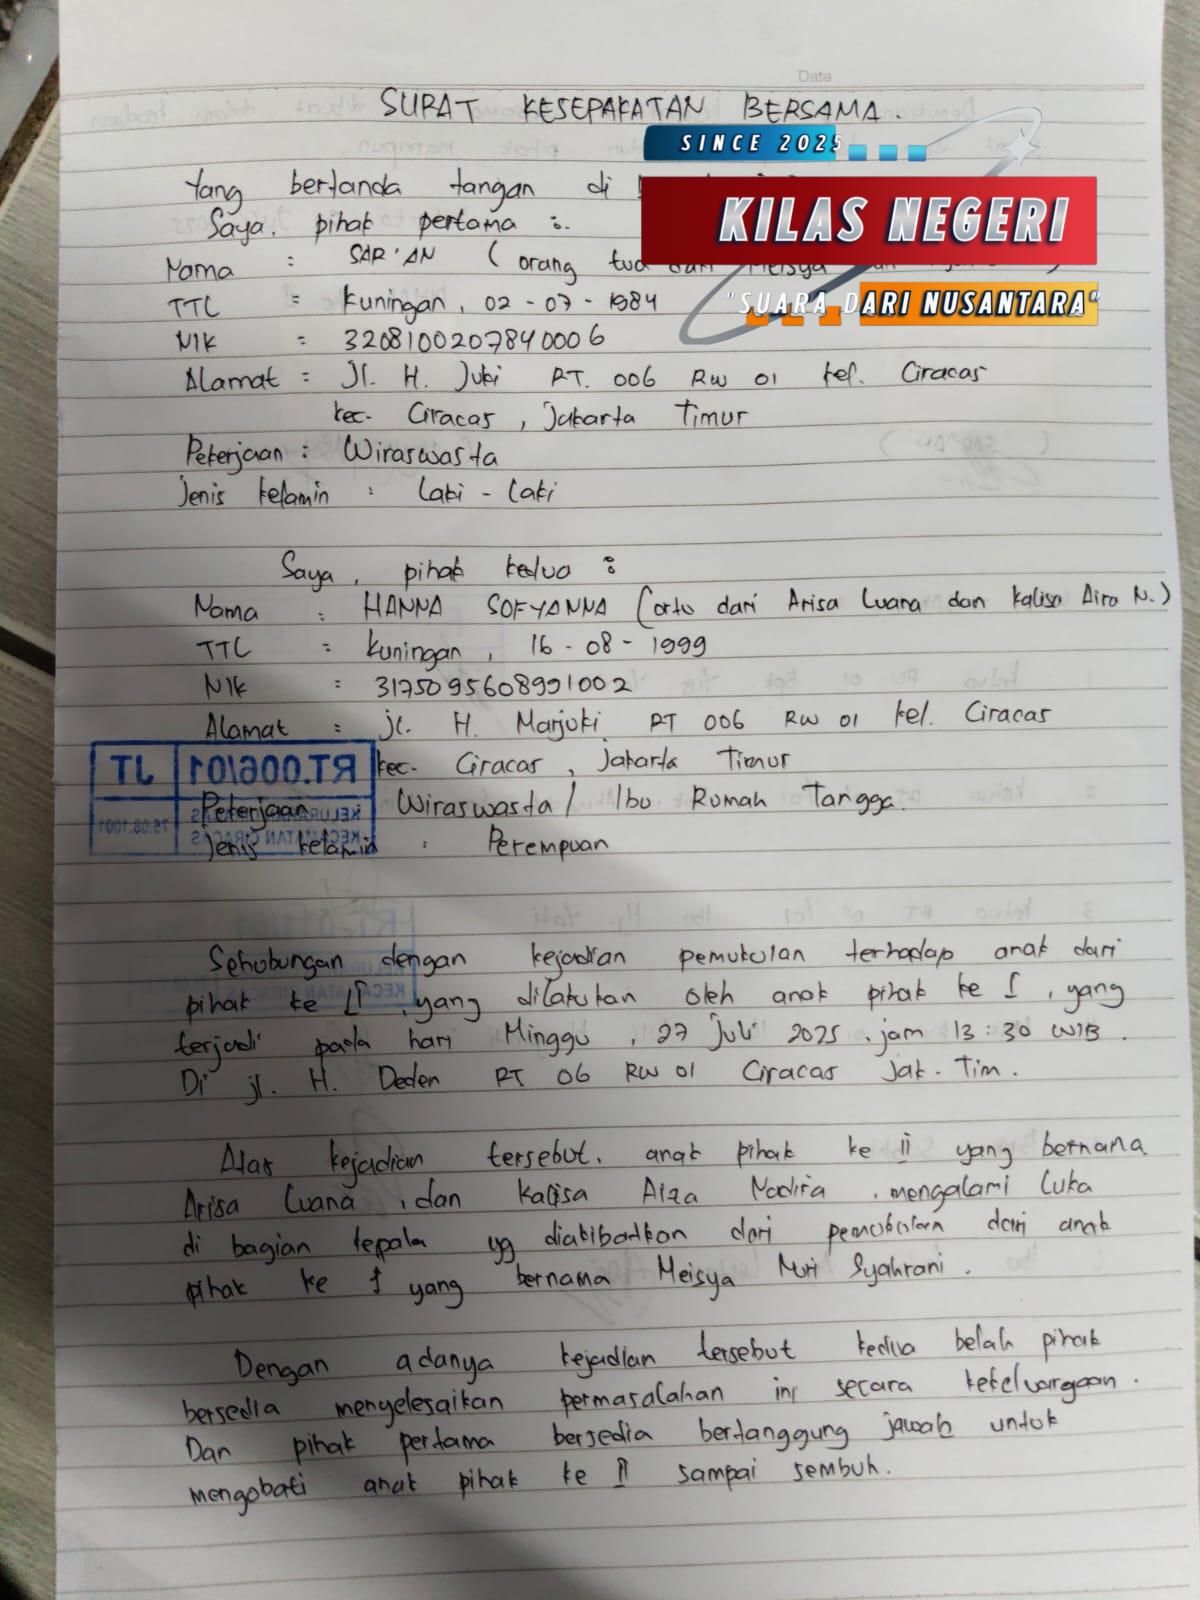 Date
SURAT KESEPAKATAN BERSAMA.
SINCE 2025
Yang bertanda tangan di
KILAS NEGERI
Saya, pihak pertama :.
Nama : SAR'AN ( orang tua dari Meisya
"SUARA DARI NUSANTARA"
TTL : Kuningan, 02-07-1984
NIK : 3208100207840006
Alamat : Jl. H. Juki RT. 006 RW 01 kel. Ciracas
kec. Ciracas, Jakarta Timur
Pekerjaan : Wiraswasta
Jenis kelamin : Laki - Laki
Saya, pihak kedua :
Nama : HANNA SOFYANNA (ortu dari Arisa Luana dan Kalisa Aira N.)
TTL : Kuningan, 16-08-1999
NIK : 3175095608991002
Alamat : Jl. H. Marjuki RT 006 RW 01 kel. Ciracas
kec. Ciracas, Jakarta Timur
RT.006/01 JT
Pekerjaan : Wiraswasta / Ibu Rumah Tangga.
Jenis kelamin : Perempuan
Sehubungan dengan kejadian pemukulan terhadap anak dari
pihak ke II, yang dilakukan oleh anak pihak ke I, yang
terjadi pada hari Minggu, 27 Juli 2025. jam 13:30 WIB.
Di jl. H. Deden RT 06 RW 01 Ciracas Jak. Tim.
Atas kejadian tersebut, anak pihak ke II yang bernama
Arisa Luana, dan Kalisa Aiza Nadira, mengalami luka
di bagian kepala yg diakibatkan dari pemukulan dari anak
pihak ke I yang bernama Meisya Nuri Syahrani.
Dengan adanya kejadian tersebut kedua belah pihak
bersedia menyelesaikan permasalahan ini secara kekeluargaan.
Dan pihak pertama bersedia bertanggung jawab untuk
mengobati anak pihak ke II sampai sembuh.